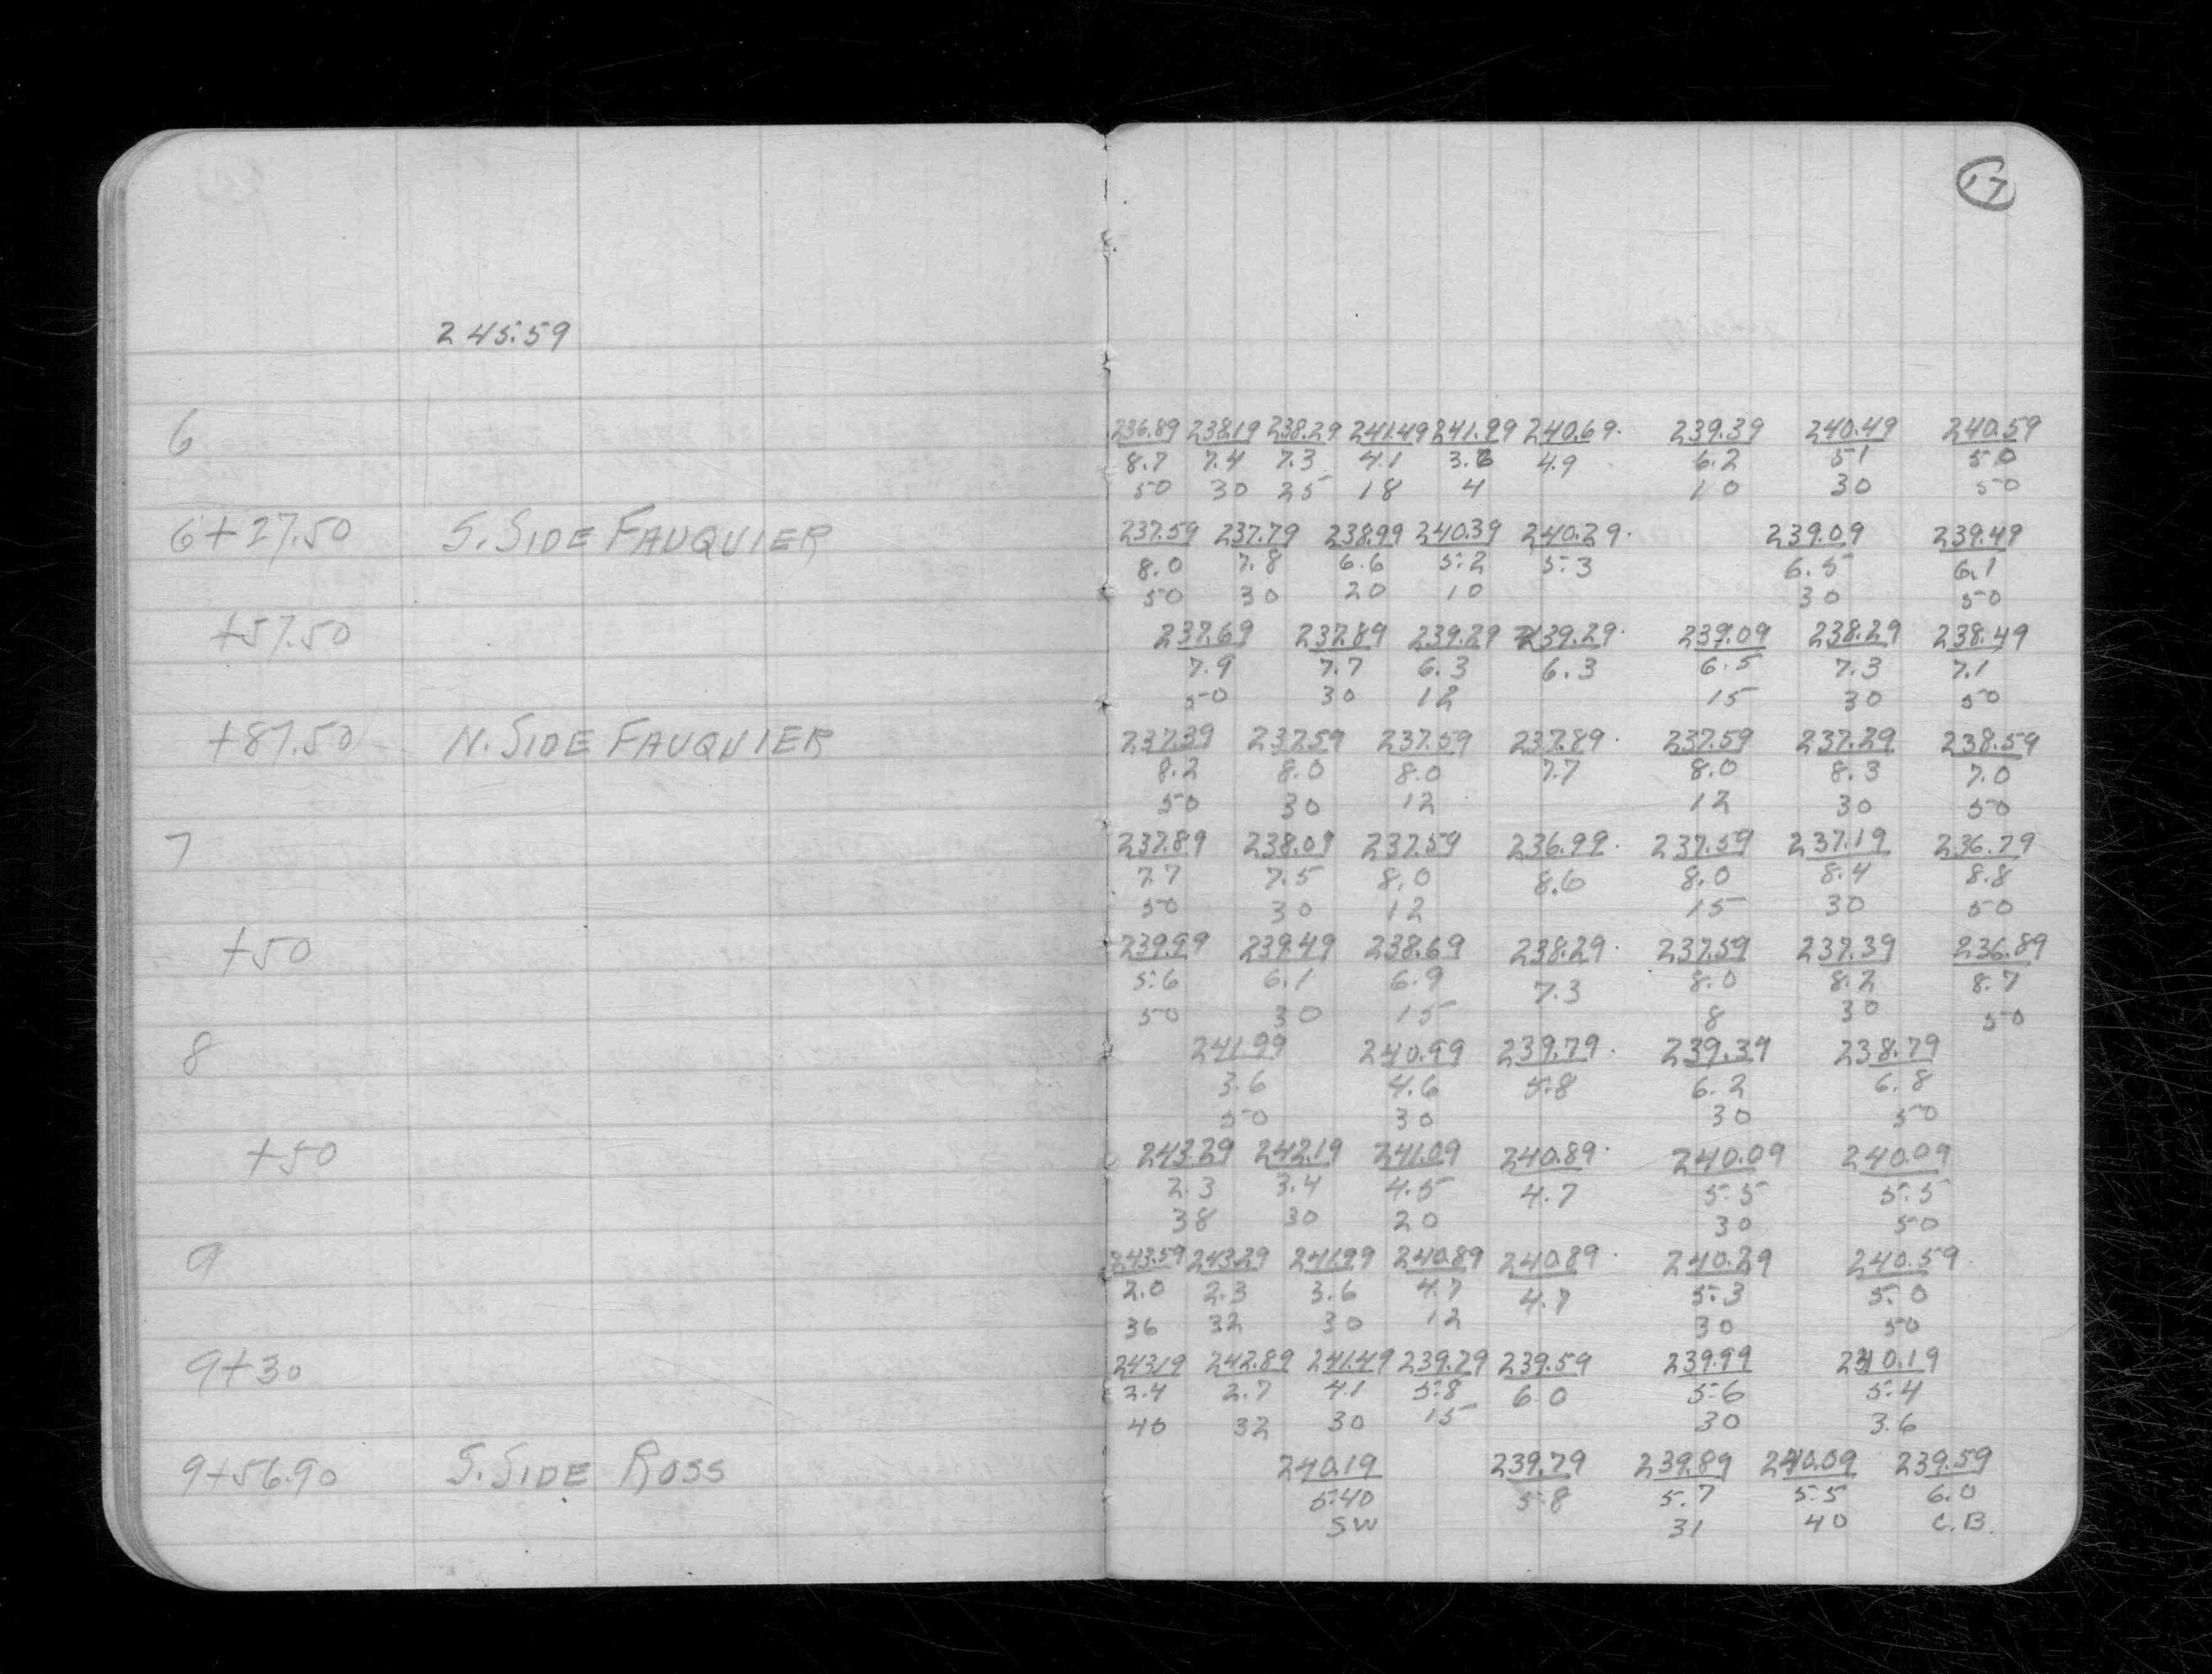 17
245.59
6 236.89 238.19 238.29 241.49 241.99 240.69 239.39 240.49 240.59
8.7 7.4 7.3 4.1 3.6 4.9 6.2 5.1 5.0
50 30 25 18 4 10 30 50
6+27.50 S. SIDE FAUQUIER 237.59 237.79 238.99 240.39 240.29 239.09 239.49
8.0 7.8 6.6 5.2 5.3 6.5 6.1
50 30 20 10 30 50
+57.50 237.69 237.89 239.29 239.29 239.09 238.29 238.49
7.9 7.7 6.3 6.3 6.5 7.3 7.1
50 30 12 15 30 50
+87.50 N. SIDE FAUQUIER 237.39 237.59 237.59 237.89 237.59 237.29 238.59
8.2 8.0 8.0 7.7 8.0 8.3 7.0
50 30 12 12 30 50
7 237.89 238.09 237.59 236.99 237.59 237.19 236.79
7.7 7.5 8.0 8.6 8.0 8.4 8.8
50 30 12 15 30 50
+50 239.99 239.49 238.69 238.29 237.59 237.39 236.89
5.6 6.1 6.9 7.3 8.0 8.2 8.7
50 30 15 8 30 50
8 241.99 240.99 239.79 239.39 238.79
3.6 4.6 5.8 6.2 6.8
50 30 30 50
+50 243.29 242.19 241.09 240.89 240.09 240.09
2.3 3.4 4.5 4.7 5.5 5.5
38 30 20 30 50
9 243.59 243.29 241.99 240.89 240.89 240.29 240.59
2.0 2.3 3.6 4.7 4.7 5.3 5.0
36 32 30 12 30 50
9+30 243.19 242.89 241.49 239.79 239.59 239.99 240.19
2.4 2.7 4.1 5.8 6.0 5.6 5.4
40 32 30 15 30 3.6
9+56.90 S. SIDE ROSS 240.19 239.79 239.89 240.09 239.59
5.40 5.8 5.7 5.5 6.0
SW 31 40 C.B.